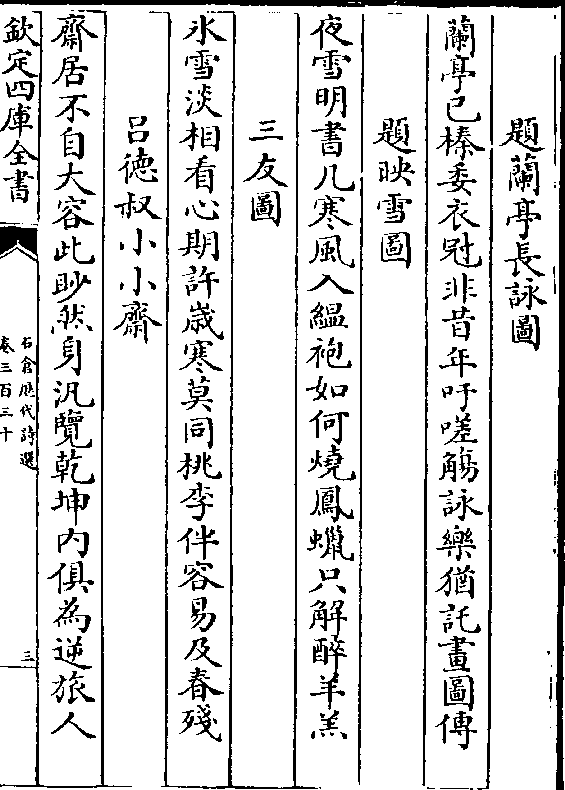 題蘭亭長詠圖
蘭亭已榛委衣冠非昔年吁嗟觴詠樂猶託畫圖傳
題映雪圖
夜雪明書几寒風入縕袍如何燒鳳蠟只解醉羊羔
三友圖
氷雪淡相看心期許歳寒莫同桃李伴容易及春殘
呂德叔小小齋
齋居不自大容此眇然身汎覽乾坤内俱為逆旅人
欽定四庫全書
石倉歴代詩選
卷三百三十
三